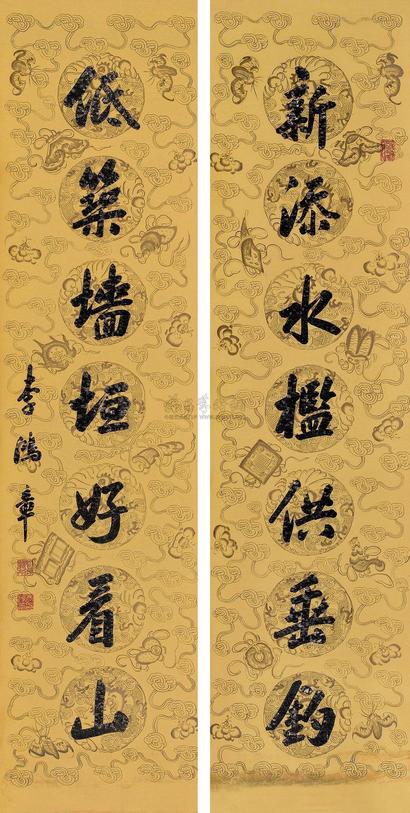 新添水檻供垂釣
低築墙垣好看山
李鴻章